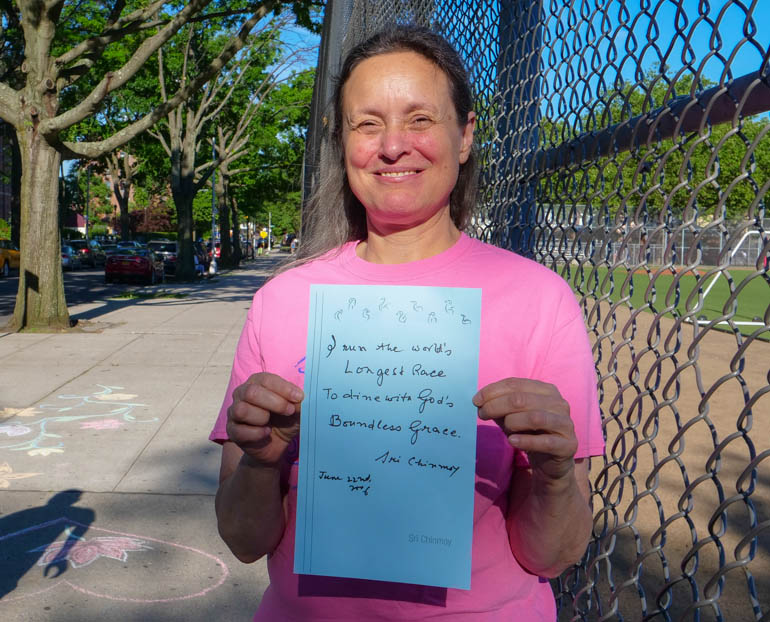 I run the world's
Longest Race
To dine with God's
Boundless Grace.
Sri Chinmoy
June 22nd,
2006
Sri Chinmoy